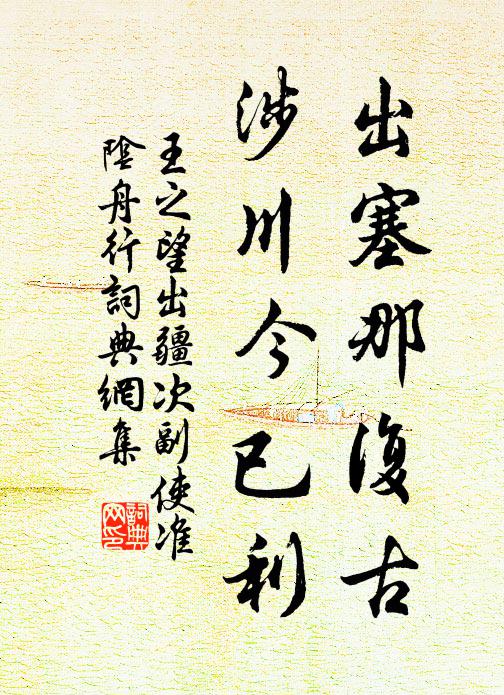 出塞那復古
涉川今已利
王之望出疆次副使淮
陰舟行詞典網集
詞典网印